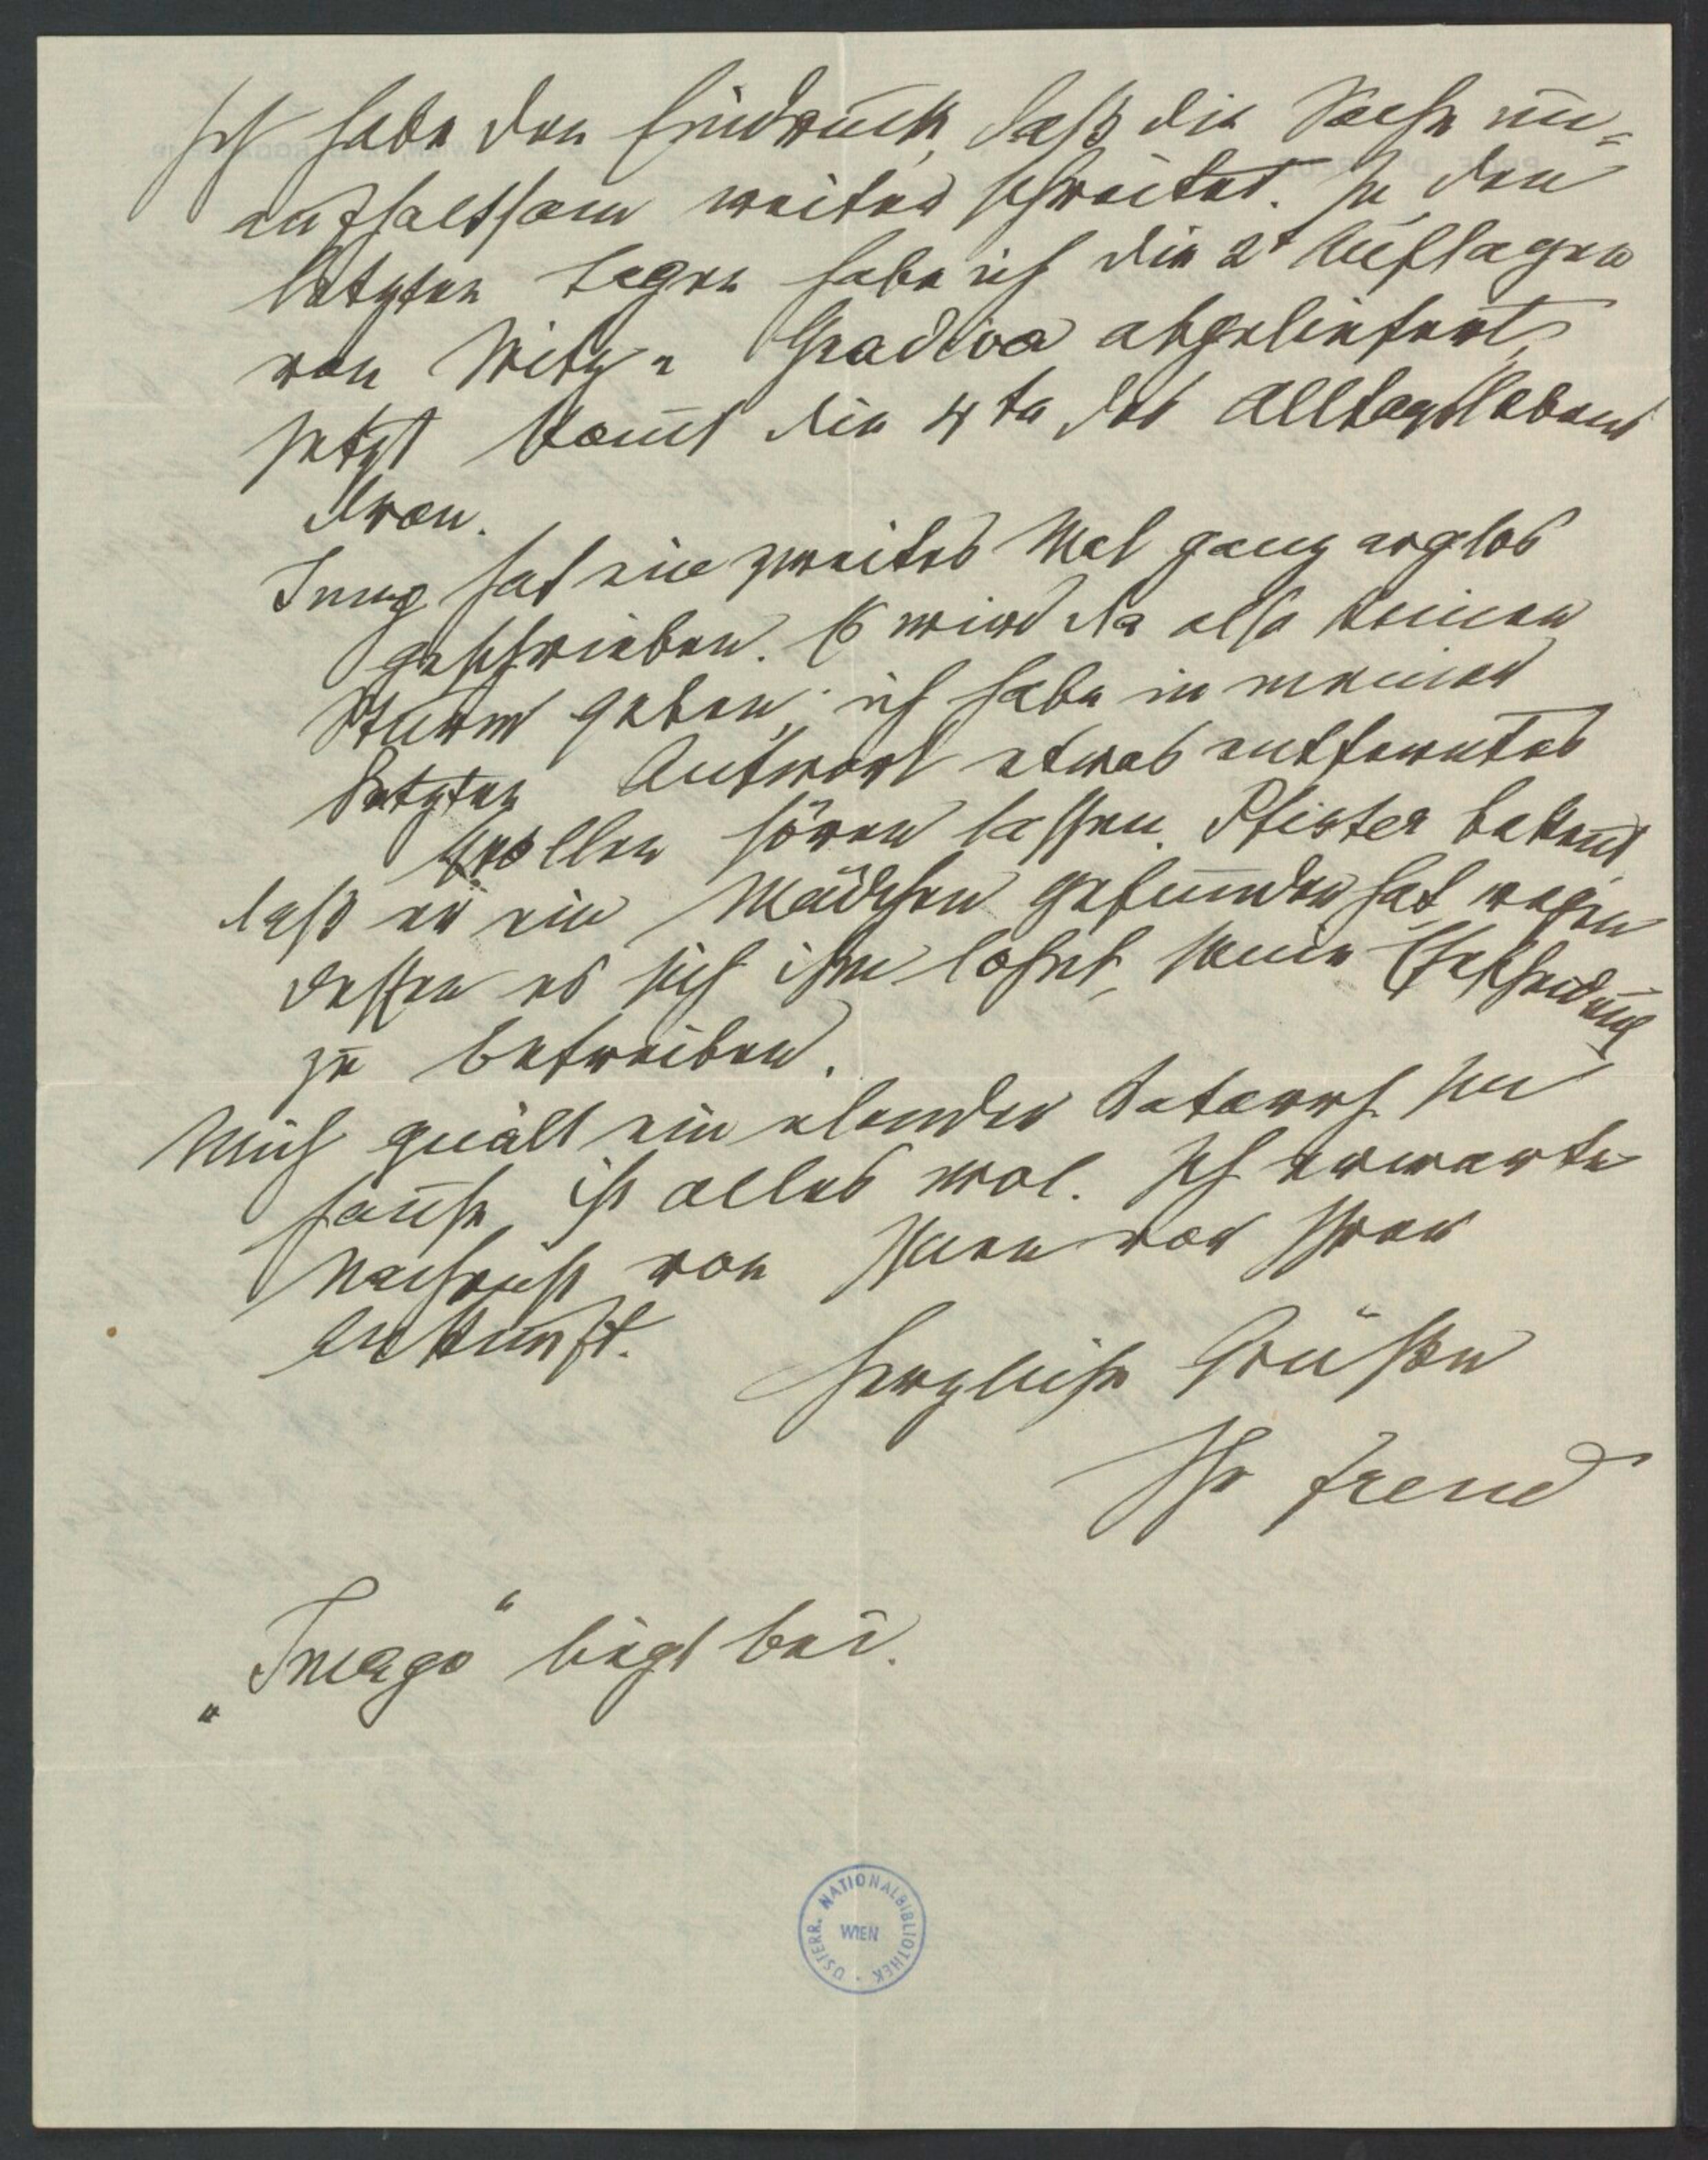 Ich habe den Eindruck, daß die Sache un=
aufhaltsam weiter schreitet. In den
letzten Tagen habe ich die 2t Auflagen
von Witz u Gradiva abgeliefert,
jetzt komt die 4te des Alltagslebens
dran.
Jung hat ein zweites Mal ganz arglos
geschrieben. Es wird da also keinen
Sturm geben; ich habe in meiner
letzten Antwort etwas entferntes
Grollen hören lassen. Pfister bekennt
daß er ein Mädchen gefunden hat wegen
dessen es sich ihm lohnt, seine Ehescheidung
zu betreiben.
Mich quält ein elender Katarrh. Im
Hause ist alles wol. Ich erwarte
Nachricht von Ihnen vor Ihrer
Ankunft.
Herzliche Grüße
Ihr Freud
„Imago“ liegt bei.
ÖSTERR. NATIONALBIBLIOTHEK
WIEN